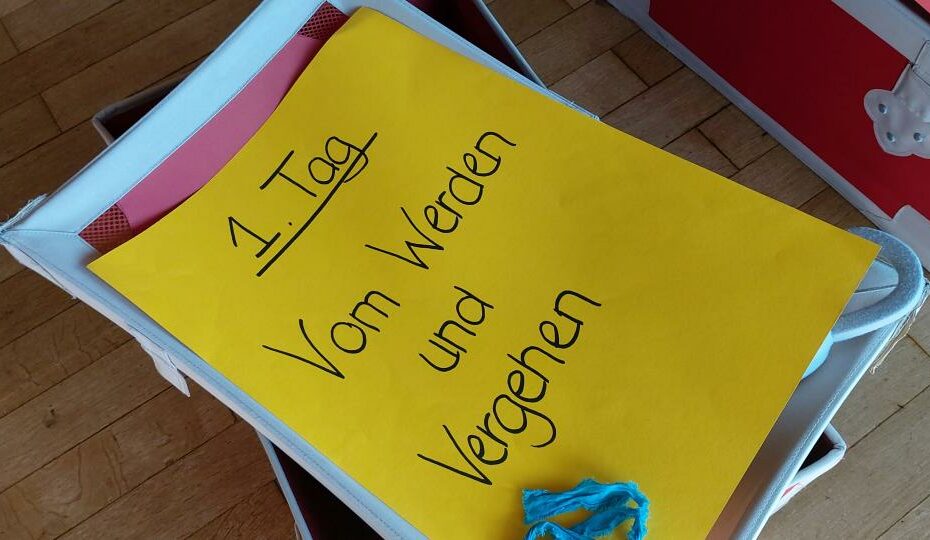 1. Tag
Vom Werden
und
Vergehen